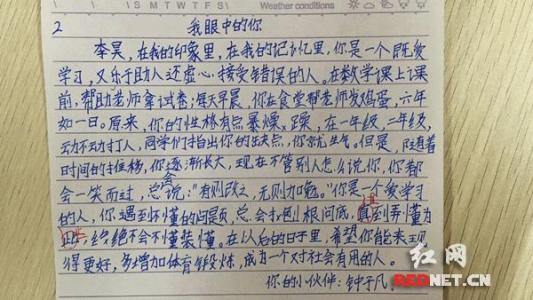 S M T W T F S Weather conditions
2
我眼中的你
李昊，在我的印象里，在我的记忆里，你是一个既爱
学习，又乐于助人还虚心接受错误的人。在数学课上课
前，帮助老师拿试卷；每天早晨，你在食堂帮老师发鸡蛋，六年
如一日。原来，你的性格有点暴燥躁，在一年级，二年级，
动不动打人，同学们指出你的缺点，你就生气。但是，随着
时间的推移，你逐渐长大，现在不管别人怎么说你，你都
会一笑而过，总会说："有则改之，无则加勉。"你是一个爱学习
的人，你遇到不懂的问题，总会打刨根问底，直到弄懂为
止，绝不会不懂装懂。在以后的日子里，希望你能表现
得更好，多增加体育锻炼，成为一个对社会有用的人。
你的小伙伴：钟子凡
红网
REDNET.CN